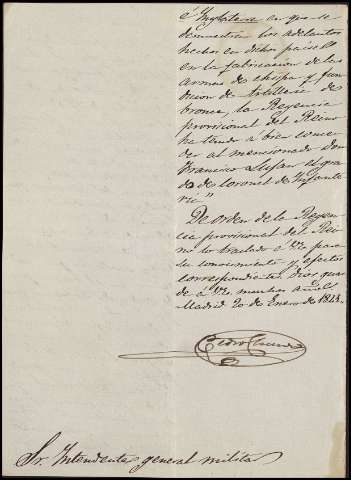 é Inglaterra en que se
demuestra los adelantos
hechos en dichos paises
en la fabricacion de las
armas de chispa y fun
dicion de artilleria de
bronce, la Regencia
provisional del Reino
ha tenido a bien conce
der al mencionado Don
Francisco Luxan el gra
do de Coronel de Infante
ria"
De orden de la Regen
cia provisional del Rei
no lo traslado á VE para
su conocimiento y efectos
correspondientes. Dios guar
de á VE muchos años
Madrid 20 de Enero de 1841.
Pedro Chacon
Sr. Intendente general militar